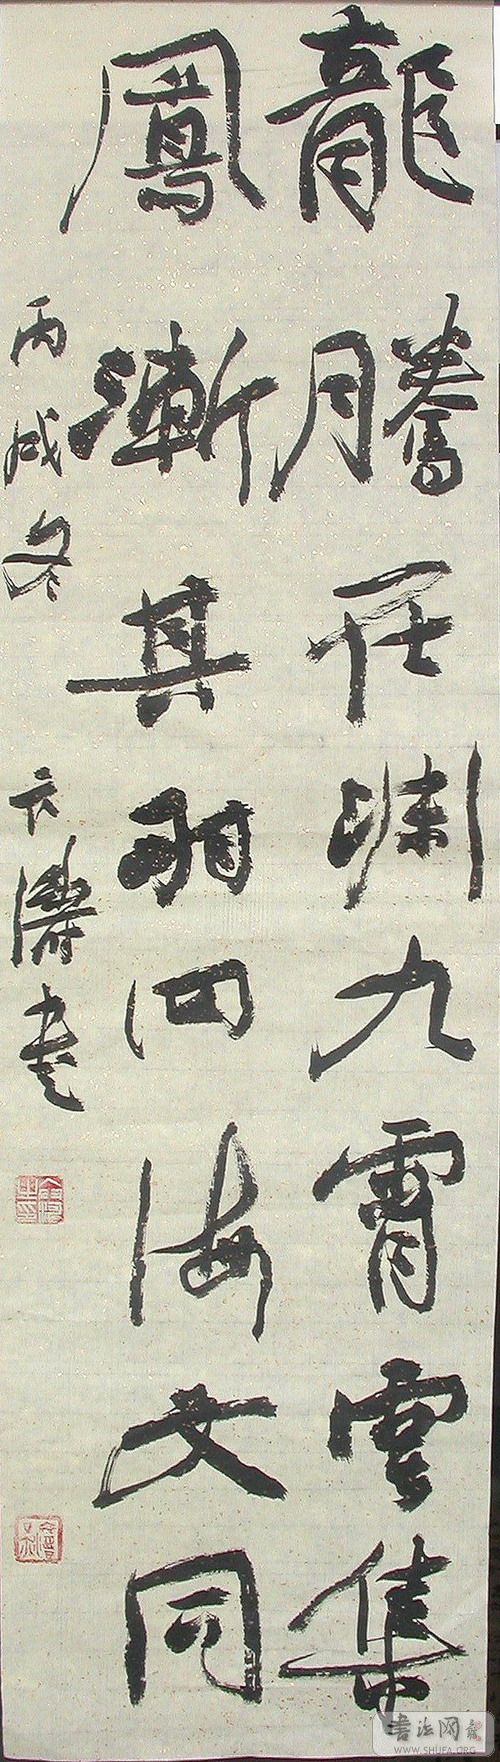 龍騰在淵九霄雲集
鳳漸其羽四海文同
丙戌冬
濤書
书法网
WWW.SHUFA.ORG